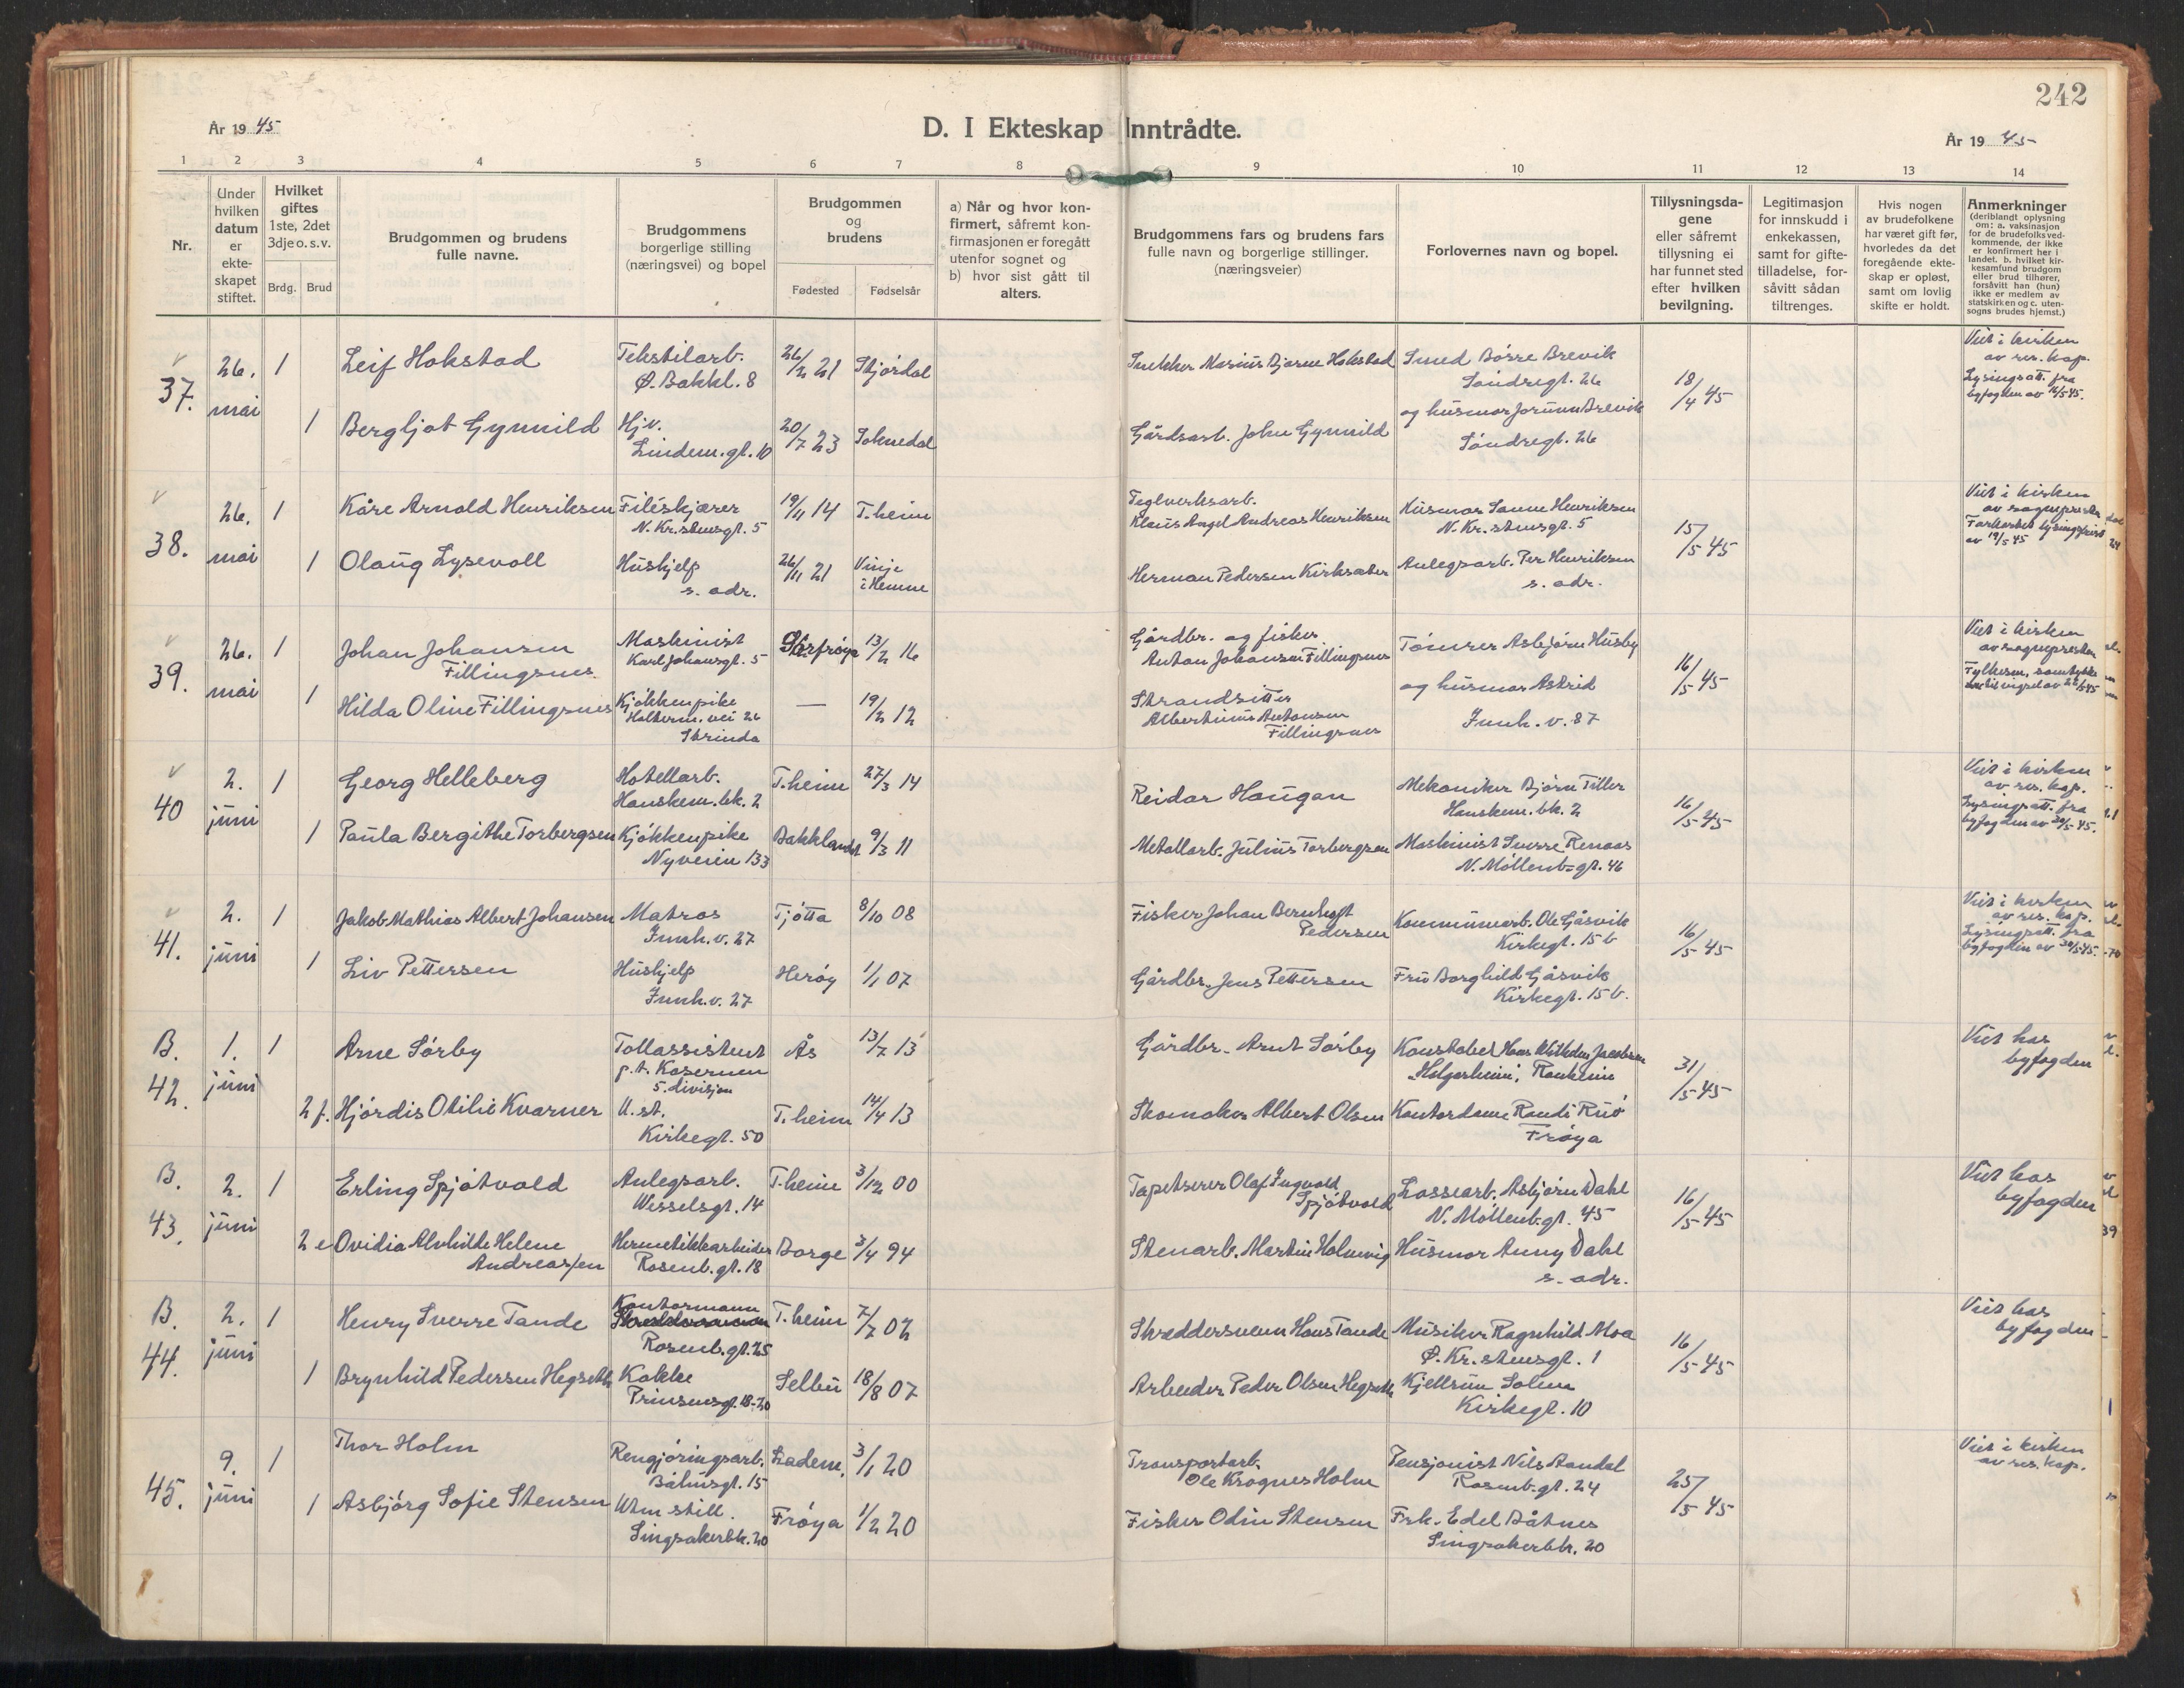 242
År 1945
D. I Ekteskap Inntrådte.
År 1945
1 2 3 4 5 6 7 8 9 10 11 12 13 14
Nr.
Under hvilken datum er ekteskapet stiftet.
Hvilket giftes 1ste, 2det 3dje o. s. v.
Brdg. Brud
Brudgommen og brudens
fulle navne.
Brudgommens
borgerlige stilling
(næringsvei) og bopel
Brudgommen
og
brudens
Fødested Fødselsår
a) Når og hvor kon-
firmert, såfremt kon-
firmasjonen er foregått
utenfor sognet og
b) hvor sist gått til
alters.
Brudgommens fars og brudens fars
fulle navn og borgerlige stillinger.
(næringsveier)
Forlovernes navn og bopel.
Tillysningsda-
gene
eller såfremt
tillysning ei
har funnet sted
efter hvilken
bevilgning.
Legitimasjon
for innskudd i
enkekassen,
samt for gifte-
tilladelse, for-
såvitt sådan
tiltrenges.
Hvis nogen
av brudefolkene
har været gift før,
hvorledes da det
foregående ekte-
skap er opløst,
samt om lovlig
skifte er holdt.
Anmerkninger
(deriblandt oplysning
om: a. vaksinasjon
for de brudefolks ved-
kommende, der ikke
er konfirmert her i
landet. b. hvilket kir-
kesamfund brudgom
eller brud tilhører,
forsåvitt han (hun)
ikke er medlem av
statskirken og c. uten-
sogns brudes hjemst.)
37. 26. mai 1 Leif Hokstad Tekstilarb. Ø. Bakkl. 8 26/2 21 Stjørdal Snekker Marius Bjarne Hokstad Smed Børre Brevik Søndregt. 26 18/4 45 Viet i kirken av res. kap. Lysingsatt. fra byfogden av 16/5 45.
1 Bergljot Gynnild Hjv. Lindem. gt. 10 20/7 23 Soknedal Gårdsarb. John Gynnild og husmor Jorunn Brevik Søndregt. 26
38. 26. mai 1 Kåre Arnold Henriksen Filéskjærer N. Kr.stensgt. 5 19/11 14 T.heim Teglverksarb. Klaus Angel Andreas Henriksen Husmor Sanne Henriksen N. Kr. stensgt. 5 15/5 45 Viet i kirken av sognepresten Forkortet lysingsfrist av 19/5 45
1 Olaug Lysevoll Hushjelp s. adr. 26/11 21 Vinje i Hemne Herman Pedersen Kirksæter Anlegsarb. Per Henriksen s. adr.
39. 26. mai 1 Johan Johansen Fillingsnes. Maskinist Karl Johansgt. 5 Sørfrøya 13/2 16 Gårdbr. og fisker Anton Johansen Fillingsnes Tømrer Asbjørn Husby 16/5 45 Viet i kirken av sognepresten
1 Hilda Oline Fillingsnes Kjøkkenpike Halterm. vei 26 Strinda — 19/2 12 Strandsitter Albertinius Antonsen Fillingsnes og husmor Astrid Innh. v. 87
40 2. juni 1 Georg Helleberg Hotellarb. Hanskem. bk. 2 T.heim 27/3 14 Reidar Haugan Mekaniker Bjørn Tiller Hanskem. bk. 2 16/5 45 Viet i kirken av res. kap. Lysingsatt. fra byfogden av 30/5 45.
1 Paula Bergithe Torbergsen Kjøkkenpike Nyveien 133 Bakklandet 9/3 11 Metallarb. Julius Torbergsen Maskinist Sverre Renaas N. Møllenb-gt. 46
41. 2. juni 1 Jakob Mathias Albert Johansen Matros Innh. v. 27 Tjøtta 8/10 08 Fisker Johan Bernhoft Pedersen Kommunearb. Ole Gåsvik Kirkegt. 15 b 16/5 45 Viet i kirken av res. kap. Lysingsatt. fra byfogden av 30/5 45.
1 Liv Pettersen Hushjelp Innh. v. 27 Herøy 1/1 07 Gårdbr. Jens Pettersen Fru Borghild Gåsvik Kirkegt. 15 b.
B. 42. 1. juni 1 Arne Sørby Tollassistent p.t. Kasernen 5. divisjon Ås 13/7 13 Gårdbr. Arnt Sørby Konstabel Hans Wilhelm Jacobsen "Holgerheim", Ranheim 31/5 45 Viet hos byfogden
2 f. Hjørdis Otilie Kvarner U. st. Kirkegt. 50 T.heim 14/4 13 Skomaker Albert Olsen Kontordame Randi Riiø Frøya
B. 43. 2. juni 1 Erling Spjøtvold Anlegsarb. Wesselsgt. 14 T.heim 3/12 00 Tapetserer Olaf Ingvald Spjøtvold Lossearb. Asbjørn Dahl N. Møllenb.gt. 45 16/5 45 Viet hos byfogden
2 e Ovidia Alvhilde Helene Andreassen Hermetikkarbeider Rosenb. gt. 18 Borge 3/4 94 Stenarb. Martin Holmvig Husmor Anny Dahl s. adr.
B. 44. 2. juni 1 Henry Sverre Tande Kontormann Rosenb. gt. 25 T.heim 7/7 02 Skreddersvenn Hans Tande Musiker Ragnhild Moa Ø. Kr.stensgt. 1 16/5 45 Viet hos byfogden
1 Brynhild Pedersen Hegseth Kokke Prinsensgt. 18-20 Selbu 18/8 07 Arbeider Peder Olsen Hegseth Kjellrun Solem Kirkegt. 10
45. 9. juni 1 Thor Holm Rengjøringsarb. Båhusgt. 15 Ladem. 3/1 20 Transportarb. Ole Krognes Holm Pensjonist Nils Aandal Rosenb.gt. 24 25/5 45 Viet i kirken av res. kap.
1 Asbjørg Sofie Stensen Uten still. Singsakerbk. 20 Frøya 1/2 20 Fisker Odin Stensen Frk. Edel Båtnes Singsakerbk. 20